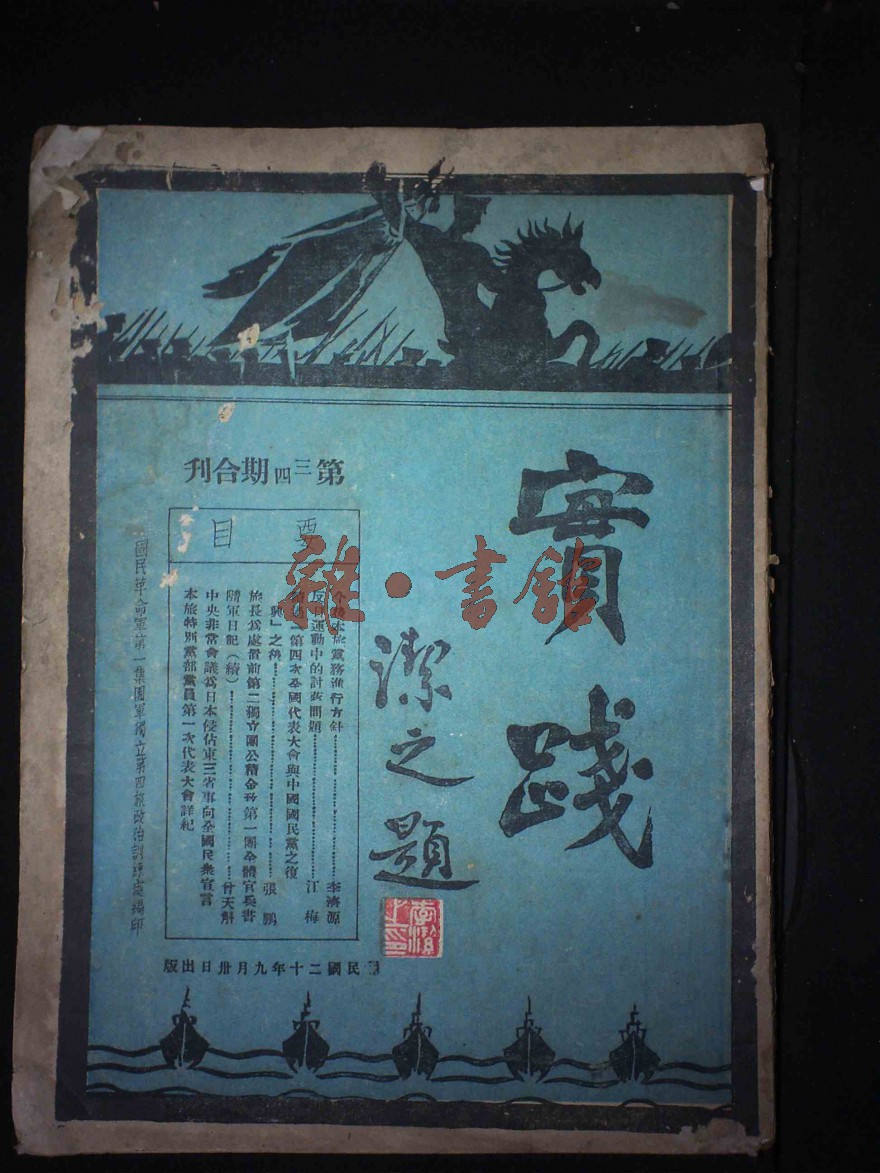 實踐
潔之題
第三四期合刊
要目
今後本旅黨務進行方針……李濟源
反日運動中的討蔣問題……江梅
第四次全國代表大會與中國國民黨之復
興」之後……張鵬
旅長為處置前第二獨立團公積金致第一團全體官兵書
隨軍日記(續)……曾天斛
中央非常會議為日本侵佔東三省事向全國民衆宣言
本旅特別黨部黨員第一次代表大會詳紀
國民革命軍第一集團軍獨立第四旅政治訓練處編印
民國二十年九月卅日出版
雜·書館